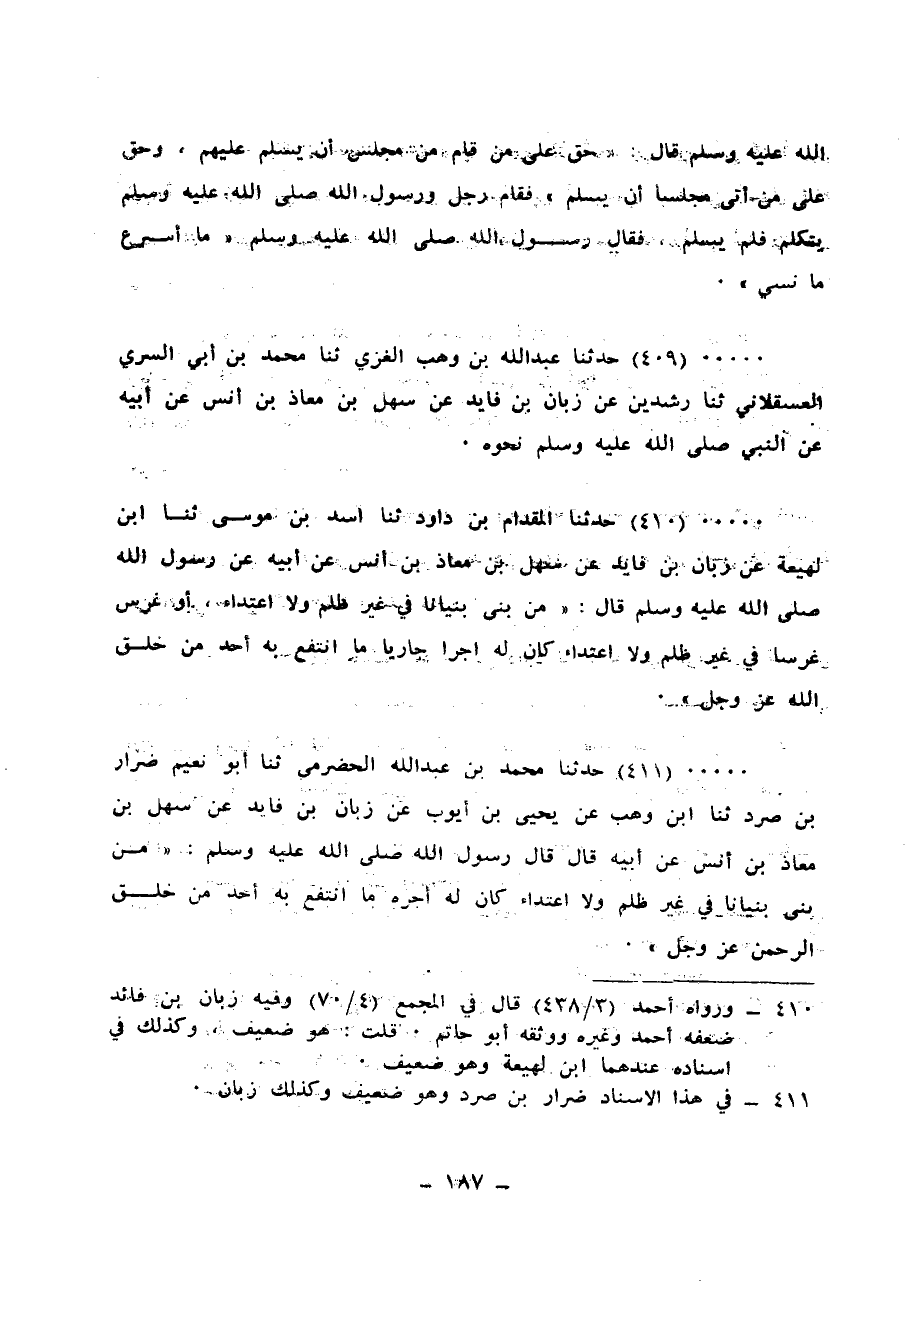 الله عليه وسلم قال : « حق على من قام من مجلس أن يسلم عليهم ، وحق
على من أتى مجلسا أن يسلم » فقام رجل ورسول الله صلى الله عليه وسلم
يتكلم فلم يسلم ، فقال رسول الله صلى الله عليه وسلم « ما أسرع
ما نسي » ٠
٠٠٠٠٠ (٤٠٩) حدثنا عبدالله بن وهب الغزي ثنا محمد بن أبي السري
العسقلاني ثنا رشدين عن زبان بن فايد عن سهل بن معاذ بن أنس عن أبيه
عن النبي صلى الله عليه وسلم نحوه ٠
٠٠٠٠٠ (٤١٠) حدثنا المقدام بن داود ثنا اسد بن موسى ثنا ابن
لهيعة عن زبان بن فايد عن سهل بن معاذ بن أنس عن أبيه عن رسول الله
صلى الله عليه وسلم قال : « من بنى بنيانا في غير ظلم ولا اعتداء ، أو غرس
غرسا في غير ظلم ولا اعتداء كان له اجرا جاريا ما انتفع به أحد من خلق
الله عز وجل » ٠
٠٠٠٠٠ (٤١١) حدثنا محمد بن عبدالله الحضرمي ثنا أبو نعيم ضرار
بن صرد ثنا ابن وهب عن يحيى بن أيوب عن زبان بن فايد عن سهل بن
معاذ بن أنس عن أبيه قال قال رسول الله صلى الله عليه وسلم : « من
بنى بنيانا في غير ظلم ولا اعتداء كان له أجره ما انتفع به أحد من خلق
الرحمن عز وجل » ٠
٤١٠ ـ ورواه أحمد (٤٣٨/٣) قال في المجمع (٧٠/٤) وفيه زبان بن فائد
ضعفه أحمد وغيره ووثقه أبو حاتم ٠ قلت : هو ضعيف ، وكذلك في
اسناده عندهما ابن لهيعة وهو ضعيف ٠
٤١١ ـ في هذا الاسناد ضرار بن صرد وهو ضعيف وكذلك زبان ٠
ـ ١٨٧ ـ